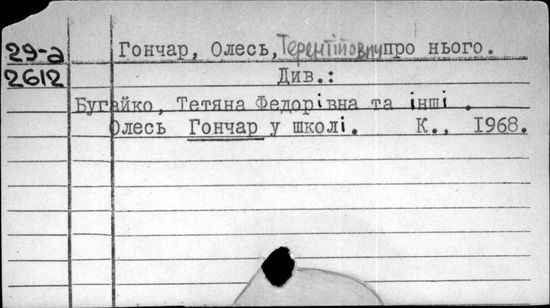 29-а
2612
Гончар, Олесь, Терентійович про нього.
Див.:
Бугайко, Тетяна Федорівна та інші .
Олесь Гончар у школі. К., 1968.